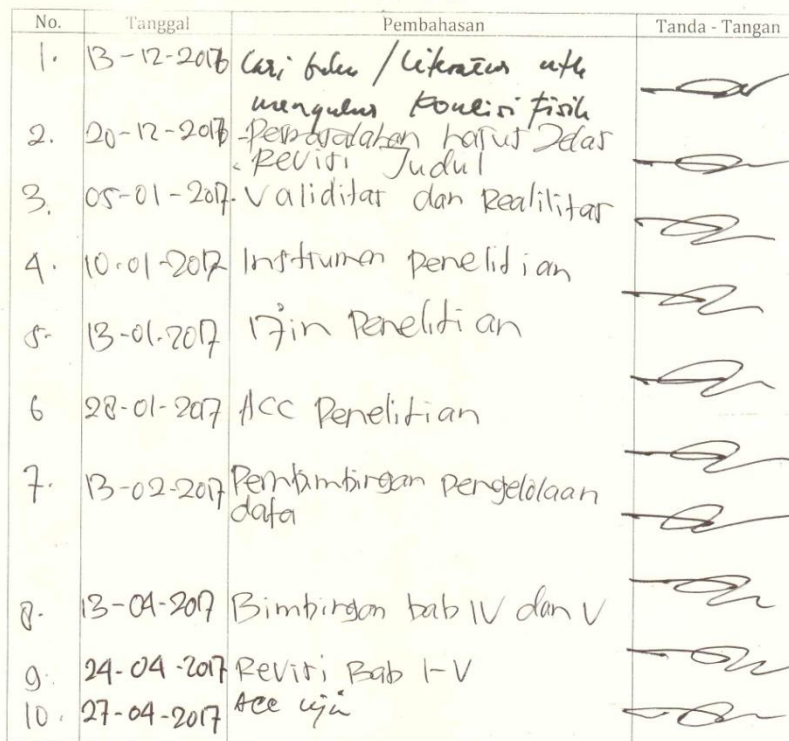 No. Tanggal Pembahasan Tanda - Tangan
1. 13-12-2016 Cari buku / literatur utk
mengukur Kondisi Fisik
2. 20-12-2016 - Permasalahan harus Jelas
- Revisi Judul
3. 05-01-2017. Validitas dan Realilitas
4. 10-01-2017 Instrumen Penelitian
5. 13-01-2017 Izin Penelitian
6 28-01-2017 ACC Penelitian
7. 13-02-2017 Pembimbingan pengelolaan
data
8. 13-04-2017 Bimbingan bab IV dan V
9. 24-04-2017 Revisi Bab I-V
10. 27-04-2017 Acc uji